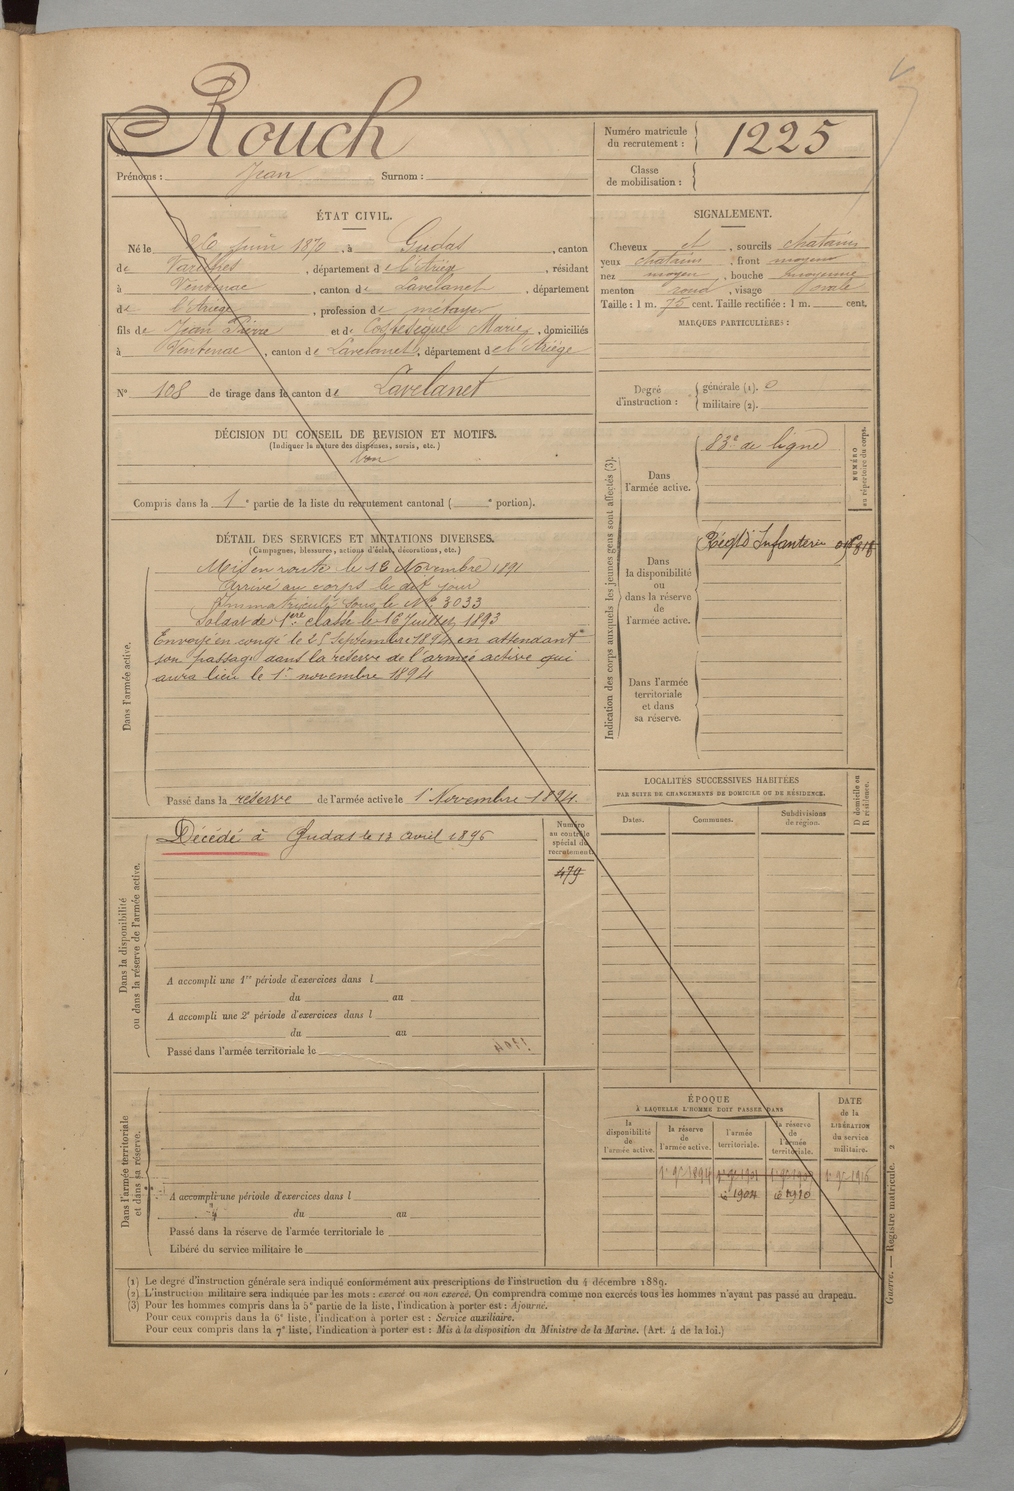 Rouch
Numéro matricule du recrutement : 1225
Prénoms : Jean Surnom :
Classe de mobilisation :
ÉTAT CIVIL.
Né le 26 juin 1870, à Gudas, canton
de Varilhes, département de l'Ariège, résidant
à Ventenac, canton de Lavelanet, département
de l'Ariège, profession de métayer
fils de Jean Pierre et de Costesèque Marie, domiciliés
à Ventenac, canton de Lavelanet, département de l'Ariège
N° 108 de tirage dans le canton de Lavelanet
SIGNALEMENT.
Cheveux et, sourcils chatains
yeux chatains, front moyen
nez moyen, bouche moyenne
menton rond, visage ovale
Taille : 1 m. 75 cent. Taille rectifiée : 1 m. cent.
MARQUES PARTICULIÈRES :
Degré d'instruction : générale (1). 0
militaire (2).
DÉCISION DU CONSEIL DE REVISION ET MOTIFS.
(Indiquer la nature des dispenses, sursis, etc.)
bon
Compris dans la 1e partie de la liste du recrutement cantonal ( e portion).
DÉTAIL DES SERVICES ET MUTATIONS DIVERSES.
(Campagnes, blessures, actions d'éclat, décorations, etc.)
Dans l'armée active.
Mis en route le 13 Novembre 1891
Arrivé au corps le dit jour
Immatriculé sous le N° 3033
Soldat de 1ère classe le 16 Juillet 1893
Envoyé en congé le 25 Septembre 1894 en attendant
son passage dans la réserve de l'armée active qui
aura lieu le 1er novembre 1894
Passé dans la réserve de l'armée active le 1er Novembre 1894.
Dans la disponibilité ou dans la réserve de l'armée active.
Décédé à Gudas le 13 avril 1896
Numéro au contrôle spécial du recrutement
479
A accompli une 1re période d'exercices dans l
du au
A accompli une 2e période d'exercices dans l
du au
Passé dans l'armée territoriale le
Dans l'armée territoriale et dans sa réserve.
A accompli une période d'exercices dans l
du au
Passé dans la réserve de l'armée territoriale le
Libéré du service militaire le
Indication des corps auxquels les jeunes gens sont affectés (3).
NUMÉRO au répertoire du corps.
Dans l'armée active.
83e de ligne
Dans la disponibilité ou dans la réserve de l'armée active.
Régt d'Infanterie
Dans l'armée territoriale et dans sa réserve.
LOCALITÉS SUCCESSIVES HABITÉES
PAR SUITE DE CHANGEMENTS DE DOMICILE OU DE RÉSIDENCE.
Dates. Communes. Subdivisions de région.
D domicile ou R résidence.
ÉPOQUE
À LAQUELLE L'HOMME DOIT PASSER DANS
la disponibilité de l'armée active.
la réserve de l'armée active.
l'armée territoriale.
la réserve de l'armée territoriale.
DATE de la LIBÉRATION du service militaire.
1er 9bre 1894
1904
1910
1er 9bre 1916
(1) Le degré d'instruction générale sera indiqué conformément aux prescriptions de l'instruction du 4 décembre 1889.
(2) L'instruction militaire sera indiquée par les mots : exercé ou non exercé. On comprendra comme non exercés tous les hommes n'ayant pas passé au drapeau.
(3) Pour les hommes compris dans la 5e partie de la liste, l'indication à porter est : Ajourné.
Pour ceux compris dans la 6e liste, l'indication à porter est : Service auxiliaire.
Pour ceux compris dans la 7e liste, l'indication à porter est : Mis à la disposition du Ministre de la Marine. (Art. 4 de la loi.)
Guerre. — Registre matricule. 2